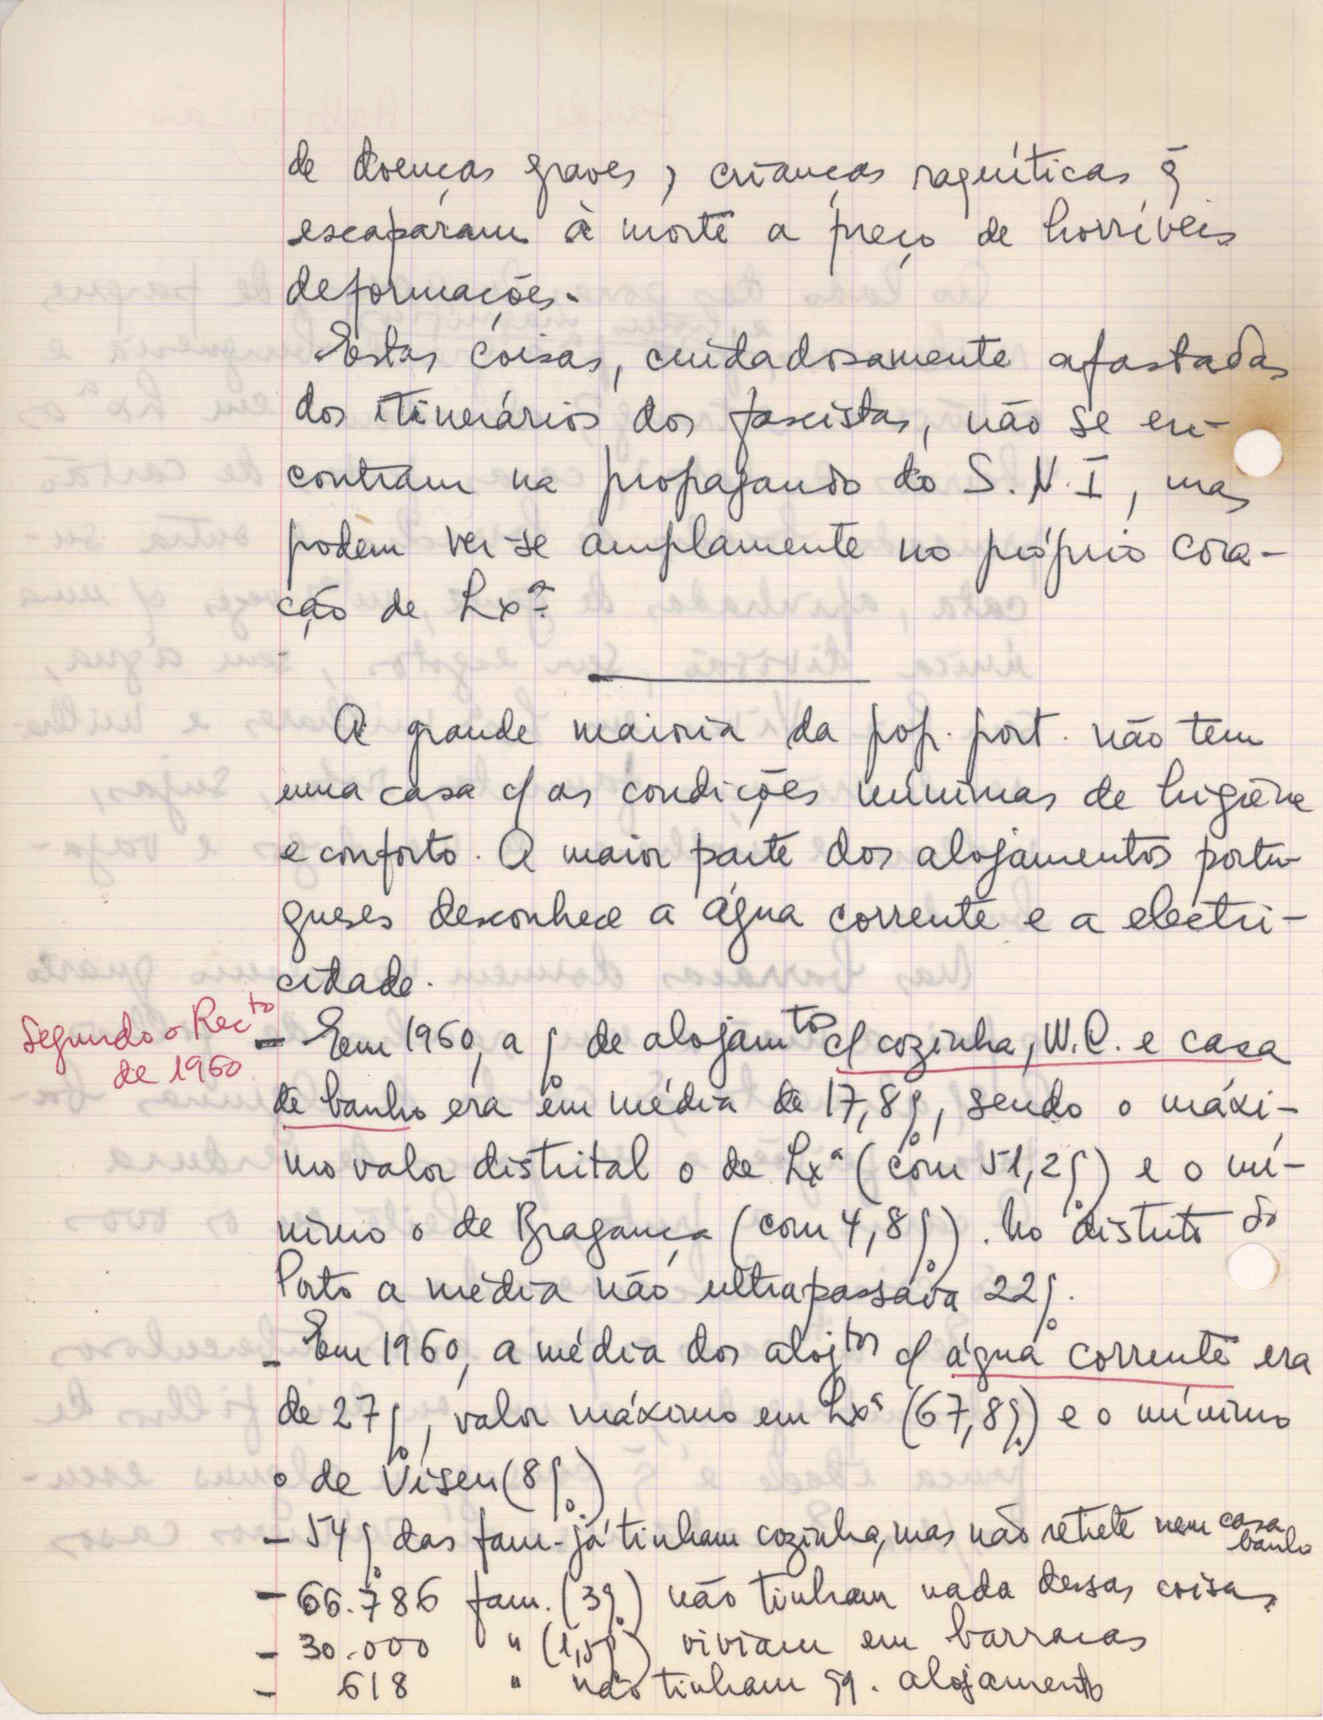 de doenças graves, crianças raquíticas q̃
escaparam à morte a preço de horríveis
deformações.
Estas coisas, cuidadosamente afastadas
dos itinerários dos fascistas, não se en-
contram na propaganda do S.N.I, mas
podem ver-se amplamente no próprio cora-
ção de Lxª.
A grande maioria da pop. port. não tem
uma casa c/ as condições mínimas de higiene
e conforto. A maior parte dos alojamentos portu-
gueses desconhece a água corrente e a electri-
cidade.
Segundo o Recto
de 1960
- Em 1960, a % de alojamtos c/ cozinha, W.C. e casa
de banho era em média de 17,8%, sendo o máxi-
mo valor distrital o de Lxª (com 51,2%) e o mí-
nimo o de Bragança (com 4,8%). No distrito do
Porto a média não ultrapassava 22%.
- Em 1960, a média dos alojtos c/ água corrente era
de 27%, valor máximo em Lxª (67,8%) e o mínimo
o de Viseu (8%)
- 54% das fam. já tinham cozinha, mas não retrete nem casa
banho
- 66.786 fam. (3%) não tinham nada dessas coisas
- 30.000 " (1,5%) viviam em barracas
- 618 " não tinham qq. alojamento